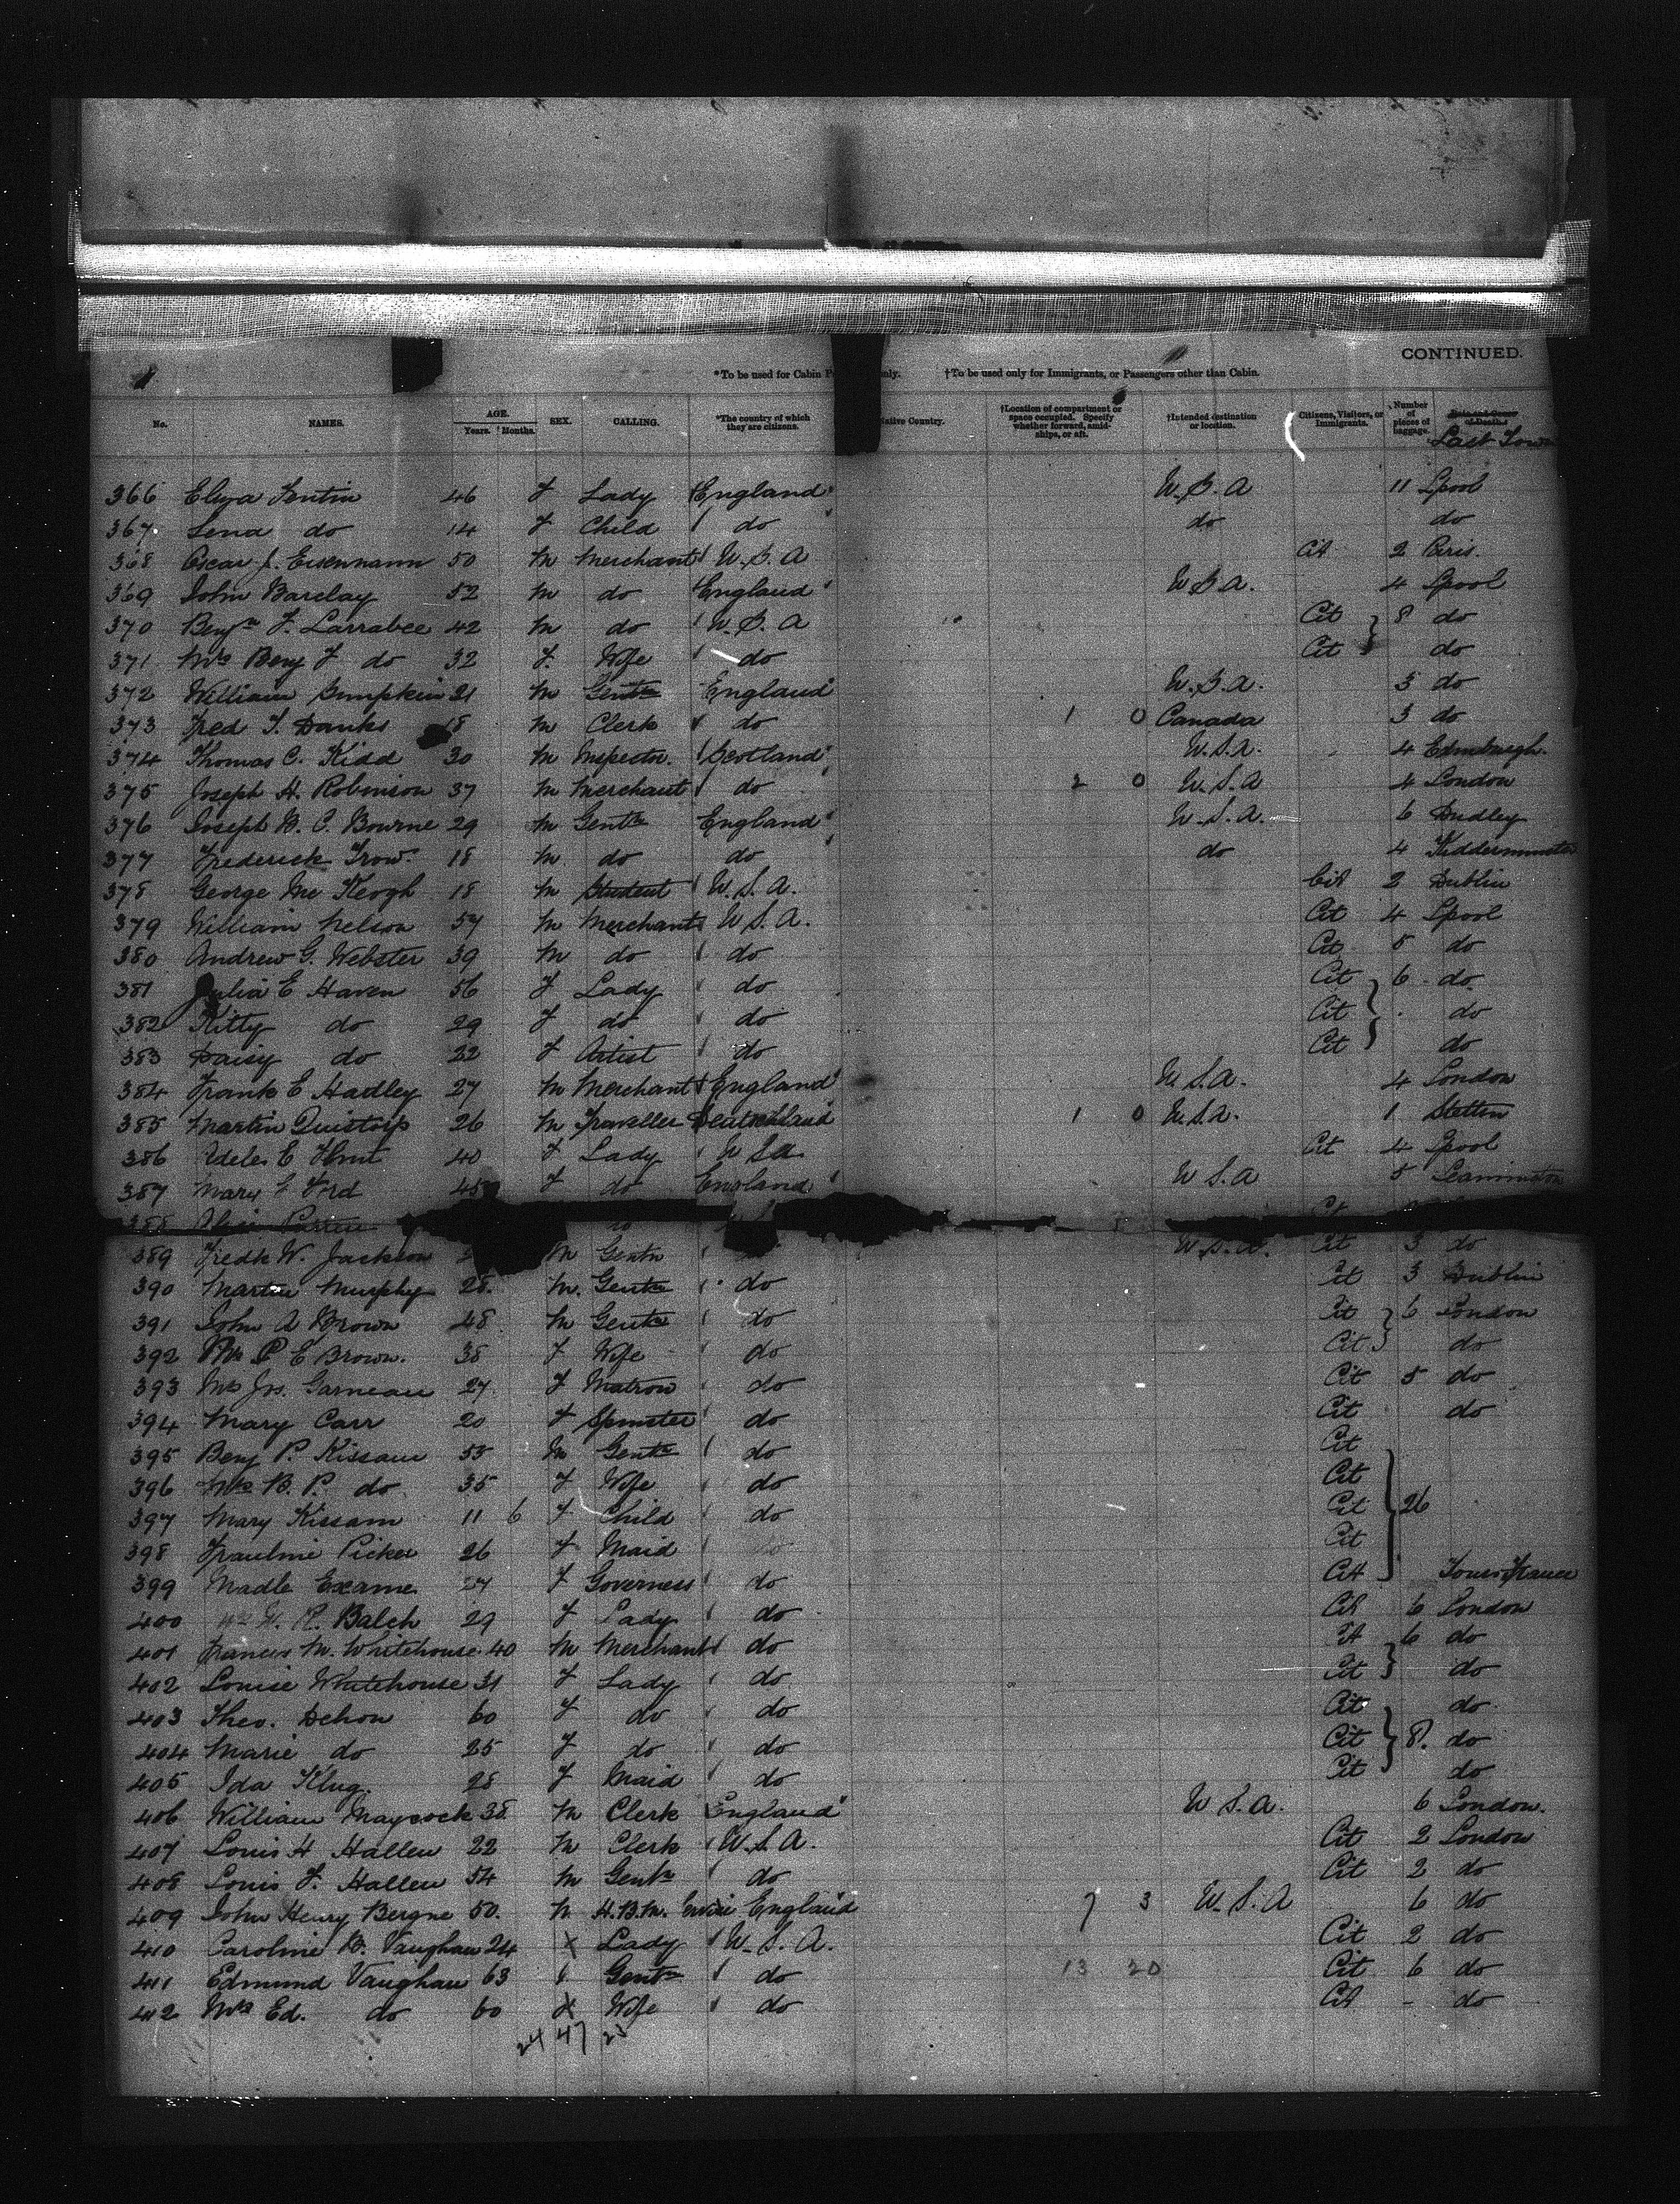 CONTINUED.
*To be used for Cabin P nly. †To be used only for Immigrants, or Passengers other than Cabin.
No. NAMES. AGE. Years. Months. SEX. CALLING. *The country of which they are citizens. Native Country. †Location of compartment or space occupied. Specify whether forward, amidships, or aft. †Intended destination or location. Citizens, Visitors, or Immigrants. Number of pieces of baggage. Date and Cause of Death. Last Town
366 Eliza 46 F Lady England U.S.A 11 Lpool
367 Lena do 14 F Child do do do
368 Oscar J. Eisenmann 50 M Merchant U.S.A Cit 2 Paris.
369 John Barclay 52 M do England U.S.A. 4 Lpool
370 Benjn F. Larrabee 42 M do U.S.A Cit 8 do
371 Mrs Benj F do 32 F. Wife do Cit do
372 William Gumpkin 21 M Gentn England U.S.A. 3 do
373 Fred T. Danks 18 M Clerk do 1 0 Canada 3 do
374 Thomas C. Kidd 30 M Inspector. Scotland U.S.A. 4 Edinburgh.
375 Joseph H. Robinson 37 M Merchant do 2 0 U.S.A 4 London
376 Joseph W. C. Bourne 29 M Gentn England U.S.A. 6 Dudley
377 Frederick Trow. 18 M do do do 4 Kidderminster
378 George Mc Keogh 18 M Student U.S.A. Cit 2 Dublin
379 William Nelson 57 M Merchant U.S.A. Cit 4 Lpool
380 Andrew G. Webster 39 M do do Cit 5 do
381 Julia E Haven 56 F Lady do Cit 6 do
382 Kitty do 29 F do do Cit do
383 Daisy do 22 F Artist do Cit do
384 Frank E Hadley 27 M Merchant England U.S.A. 4 London
385 Martin Quistorp 26 M Traveller Deutschland 1 0 U.S.A. 1 Stettin
386 Adele E Hunt 40 F Lady U.S.A. Cit 4 Lpool
387 Mary E Ford 45 F do England U.S.A 5 Leamington
388
389 Fredk W. Jackson M Gentn U.S.A. Cit 3 do
390 Martin Murphy 28. M. Gentn do Cit 3 Dublin
391 John A Brown 48 M Gentn do Cit 6 London
392 Mrs P E Brown. 38 F Wife do Cit do
393 Mrs Jos. Garneau 27 F Matron do Cit 5 do
394 Mary Carr 20 F Spinster do Cit do
395 Benj P. Kissam 53 M Gentn do Cit
396 Mrs B. P. do 35 F Wife do Cit
397 Mary Kissam 11 6 F Child do Cit 26
398 Frauline Picker 26 F Maid do Cit
399 Madle Exame 27 F Governess do Cit Tours France
400 W. R. Balch 29 F Lady do Cit 6 London
401 Francis M. Whitehouse 40 M Merchant do Cit 6 do
402 Louise Whitehouse 31 F Lady do Cit do
403 Theo. Dehon 60 F do do Cit do
404 Marie do 25 F do do Cit 8. do
405 Ida Klug. 28 F Maid do Cit do
406 William Maycock 38 M Clerk England U.S.A. 6 London.
407 Louis H Hallen 22 M Clerk U.S.A. Cit 2 London
408 Louis F. Hallen 54 M Gentn do Cit 2 do
409 John Henry Bergne 50. M H.B.M. England 7 3 U.S.A 6 do
410 Caroline B. Vaughan 24 X Lady U.S.A. Cit 2 do
411 Edmund Vaughan 63 Gentn do 13 20 Cit 6 do
412 Mrs Ed. do 60 X Wife do Cit - do
24 47 23